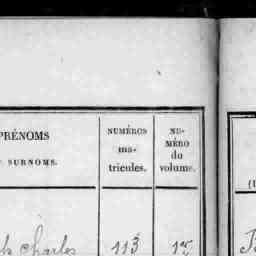 PRÉNOMS
SURNOMS.
NUMÉROS
ma-
tricules.
NU-
MÉRO
du
volume.
Charles
113
1er